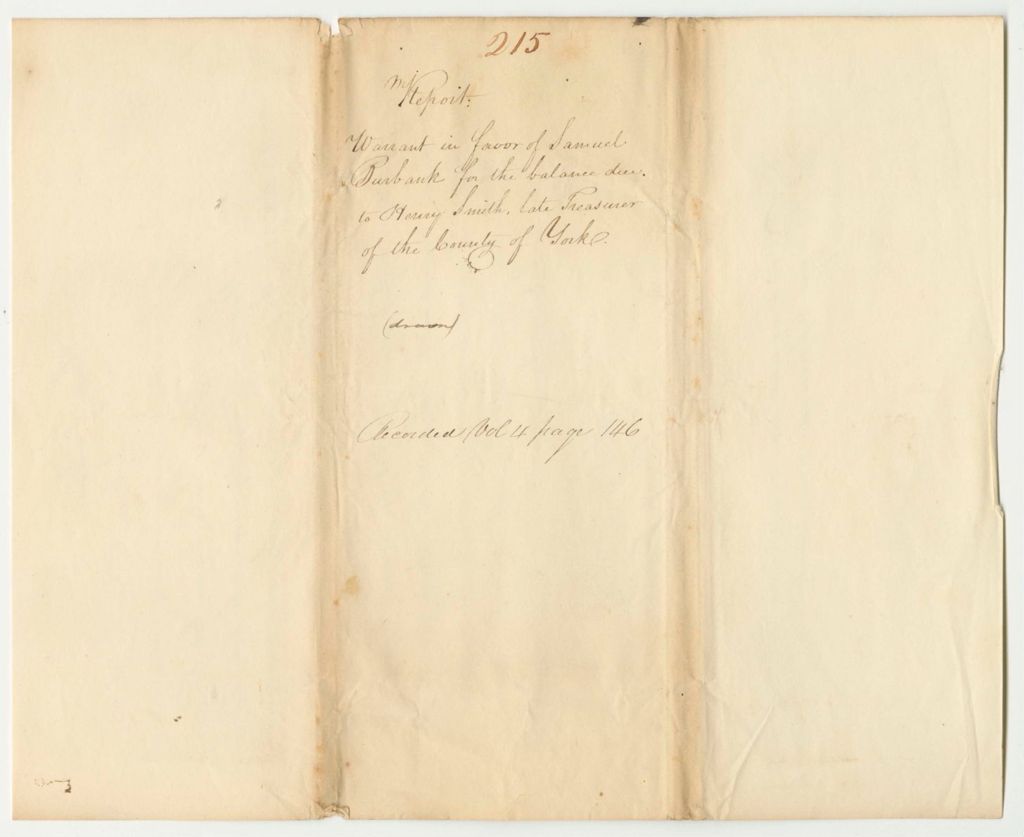 215
Report.
Warrant in favor of Samuel
Burbank for the balance due.
to Henry Smith, late Treasurer
of the County of York.
(drawn)
Recorded Vol 4 page 146